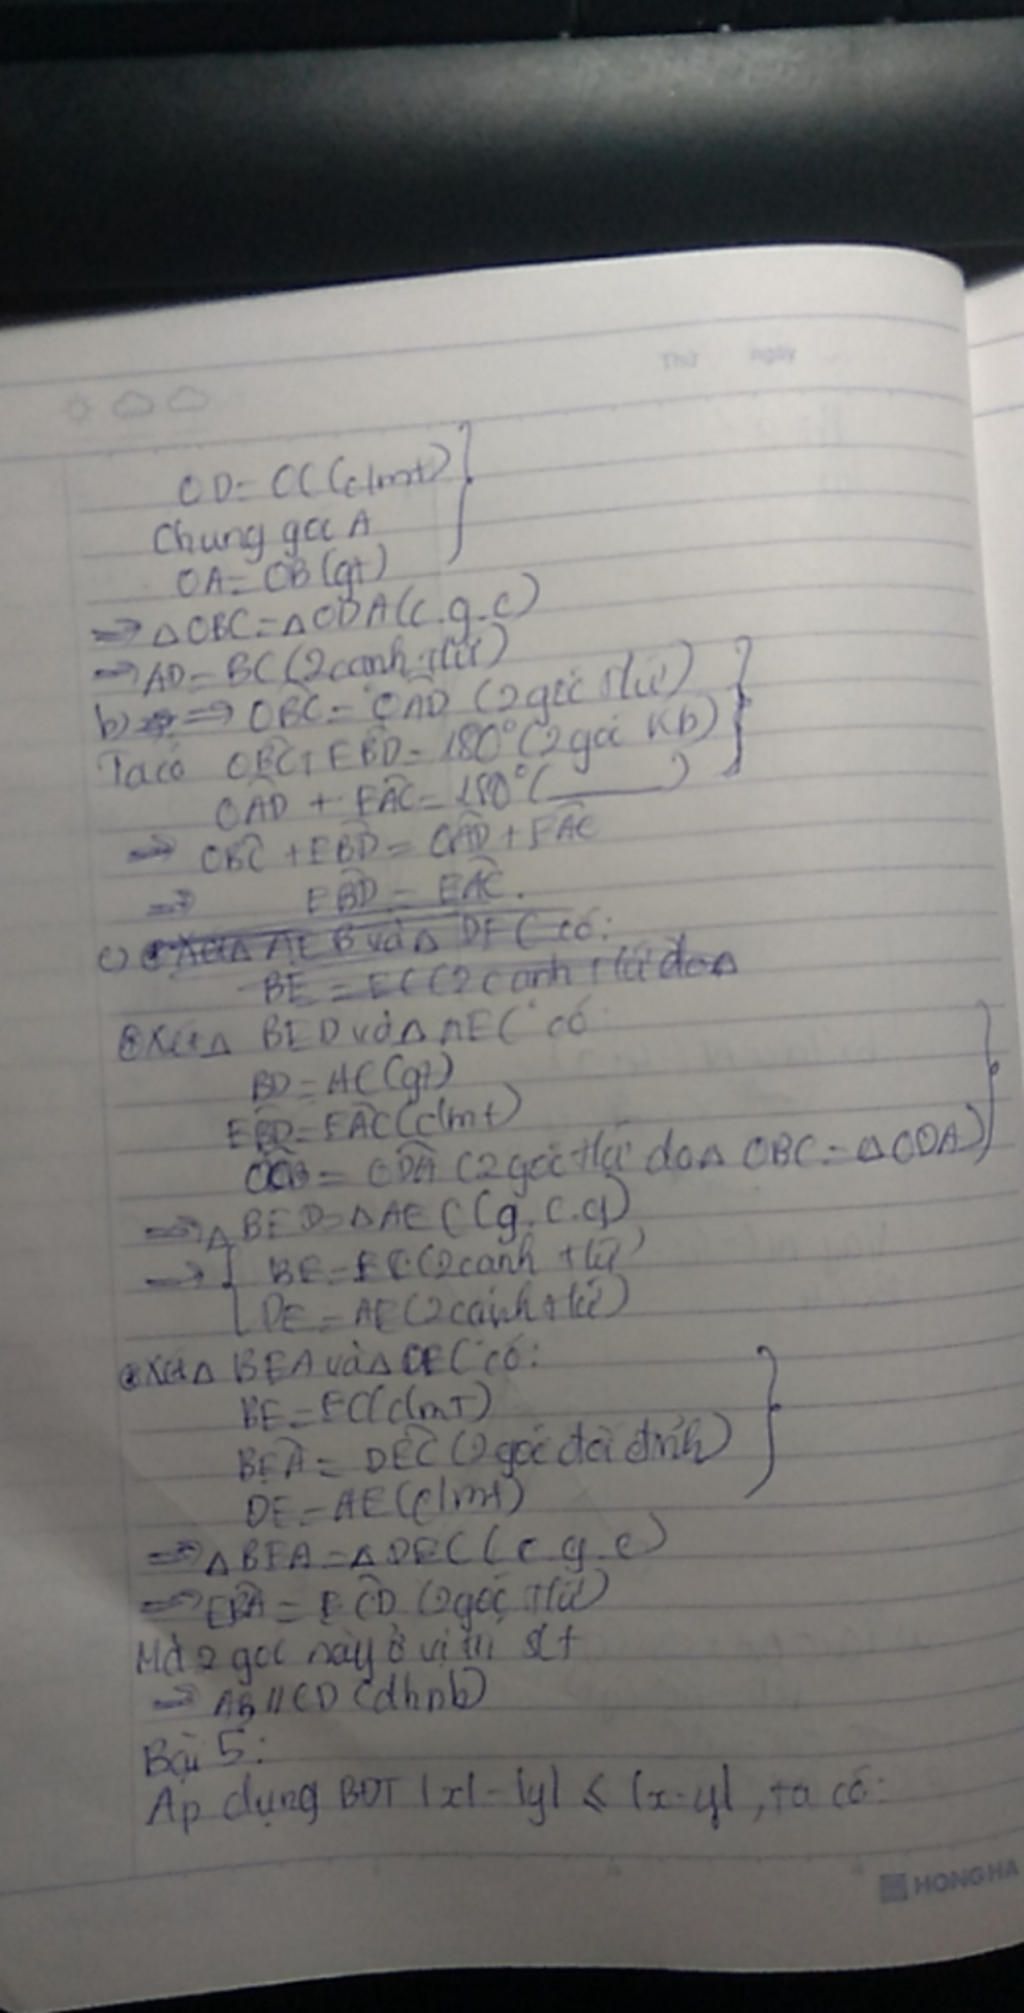 Thứ ngày
OD = OC (clmt)
Chung góc A
OA = OB (gt)
⇒ △OBC = △ODA (c.g.c)
⇒ AD = BC (2 cạnh tứ)
b) ⇒ OBC = OAD (2 góc tứ)
Ta có OBC + EBD = 180° (2 góc kb)
OAD + EAC = 180° (____)
⇒ OBC + EBD = OAD + EAC
⇒ EBD = EAC.
c) Xét △ AEB và △ DEC có:
BE = EC (2 cạnh tứ do △
Xét △ BED và △ AEC có:
BD = AC (gt)
EBD = EAC (clmt)
OCB = ODA (2 góc tứ do △ OBC = △ ODA)
⇒ △ BED = △ AEC (g.c.g)
⇒ BE = EC (2 cạnh tứ)
DE = AE (2 cạnh tứ)
Xét △ BEA và △ DEC có:
BE = EC (clmt)
BEA = DEC (2 góc đối đỉnh)
DE = AE (clmt)
⇒ △ BEA = △ DEC (c.g.c)
⇒ EBA = ECD (2 góc tứ)
Mà 2 góc này ở vị trí slt
⇒ AB // CD (dhnb)
Bài 5:
Áp dụng BĐT |x| - |y| ≤ |x-y|, ta có:
HONG HA